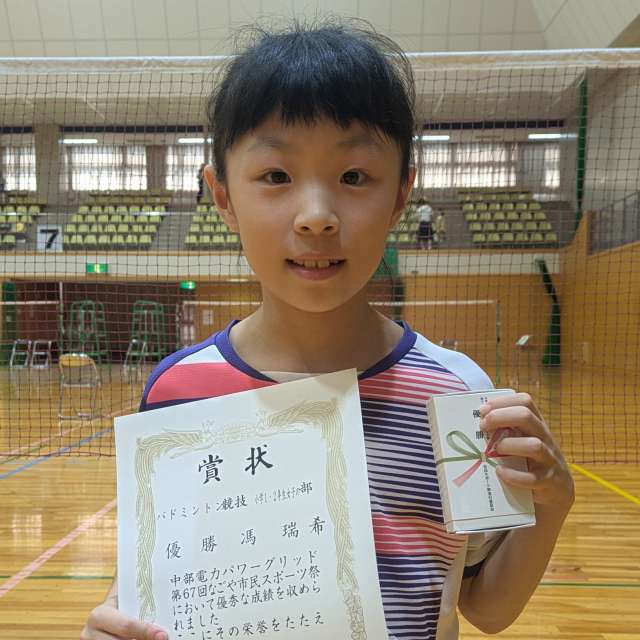 7
賞状
バドミントン競技 小学1・2年生女子の部
優勝 馮 瑞希
中部電力パワーグリッド
第67回なごや市民スポーツ祭
において優秀な成績を収めら
れました
ここにその栄誉をたたえ
優勝